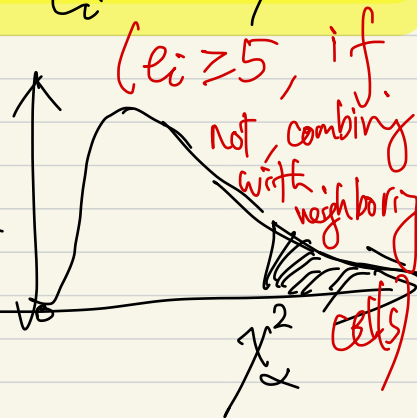 (ei ≥ 5, if
not, combing
with
neighboring
cells)
0
χ²α